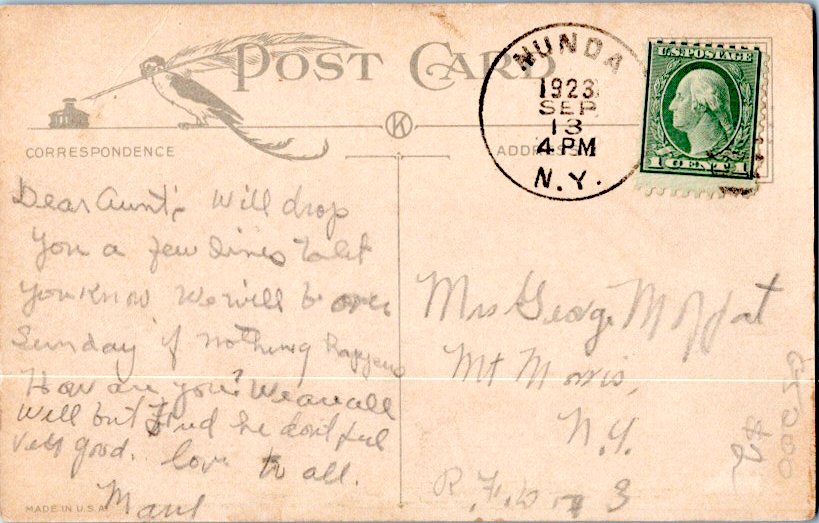 POST CARD
NUNDA
1923
SEP
13
4 PM
N.Y.
U.S. POSTAGE
1 CENT 1
K
CORRESPONDENCE
ADDRESS
Dear Aunt; Will drop
you a few lines to let
you know We will be over
Sunday if nothing happens
How are you? We are all
well but Fred he dont feel
very good. love to all.
Mrs George Moffat
Mt Morris,
N.Y.
R.F.D. 3
MADE IN U.S.A.